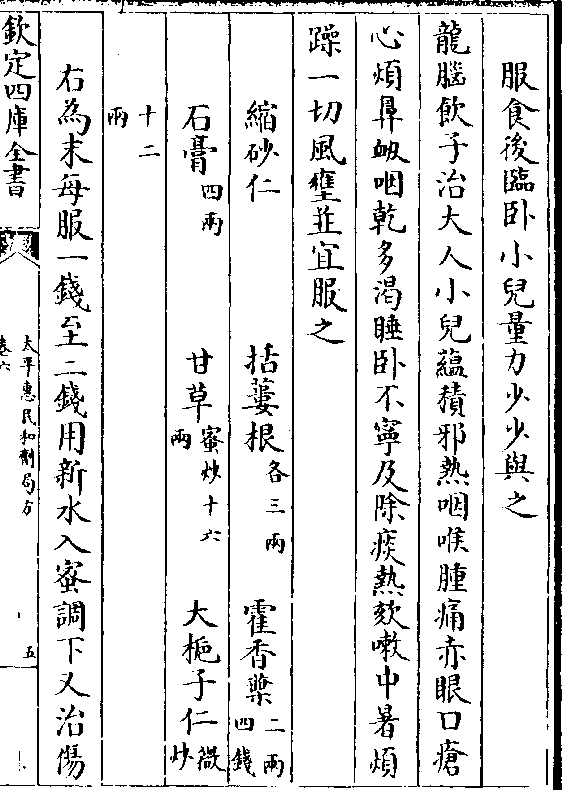 服食後臨卧小兒量力少少與之
龍腦飲子治大人小兒藴積邪熱咽喉腫痛赤眼口瘡
心煩鼻衂咽乾多渴睡卧不寧及除痰熱欬嗽中暑煩
躁一切風壅並宜服之
縮砂仁 栝蔞根各三兩 藿香葉二兩四錢
石膏四兩 甘草蜜炒十六兩 大梔子仁微炒
十二兩
右為末每服一錢至二錢用新水入蜜調下又治傷
欽定四庫全書
太平惠民和劑局方
卷六
五